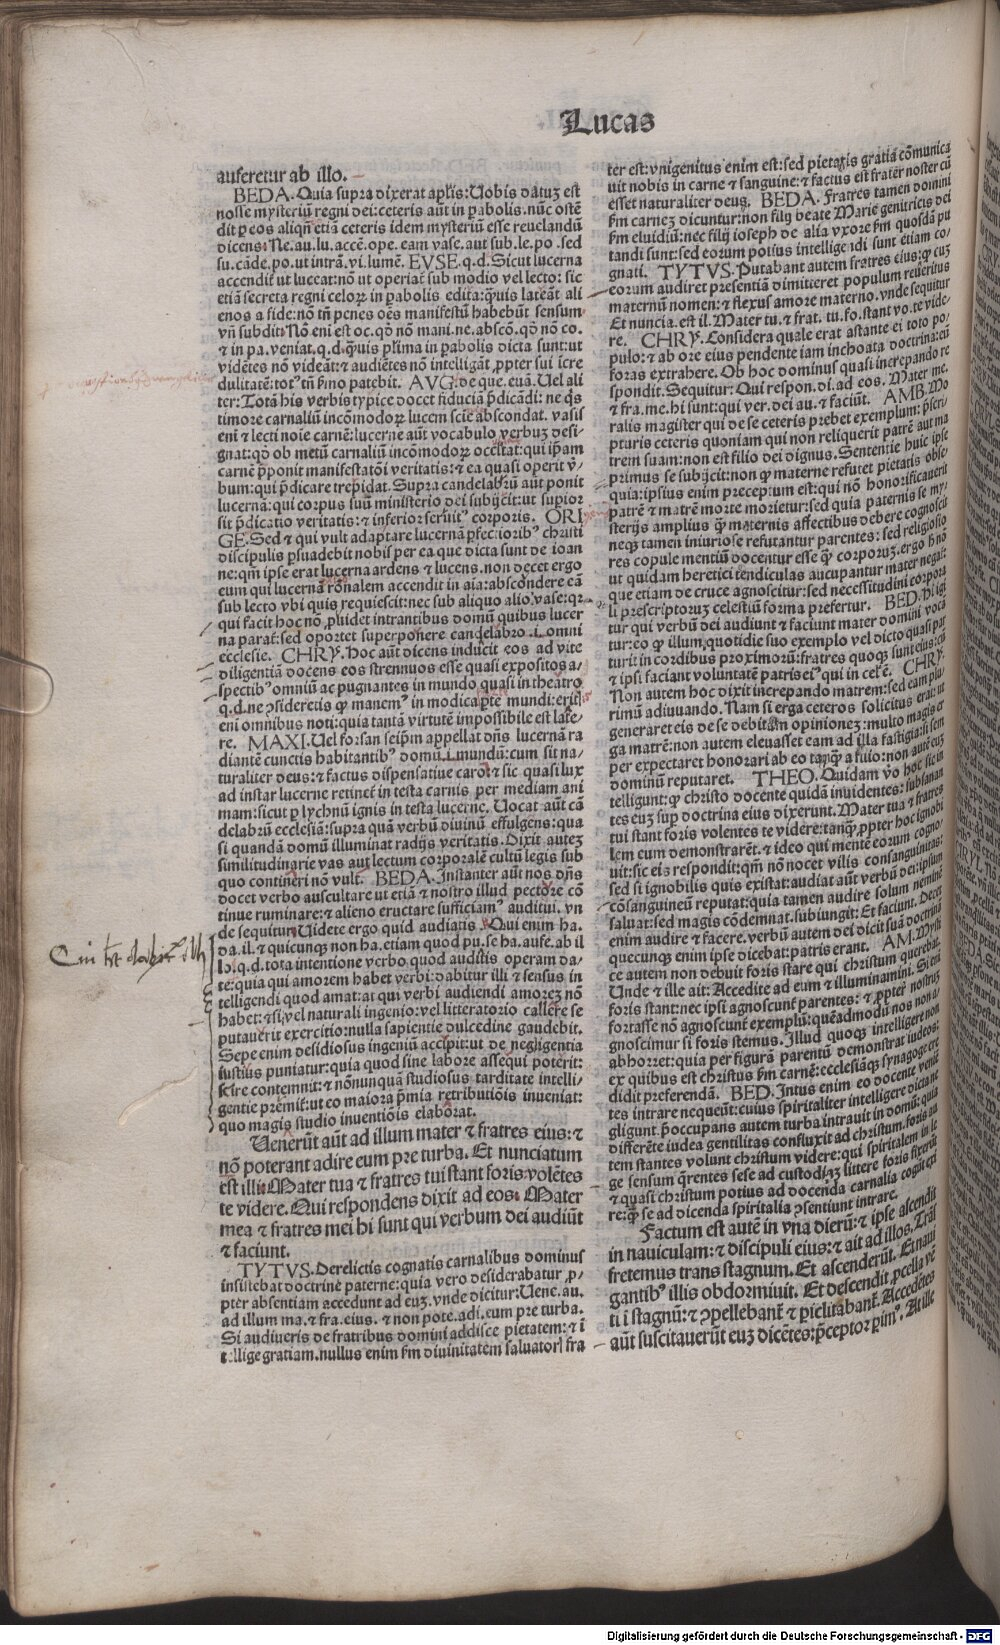 Lucas
auferetur ab illo.
BEDA. Quia supra dixerat apl̄is: Uobis datuʒ est
nosse mysteriū regni dei: ceteris aūt in ꝑabolis. nūc ostē
dit ꝑ eos aliqn̄ etiā ceteris idem mysteriū esse reuelandū
dicens. Ne. au. lu. accē. ope. eam vase. aut sub. le. po. sed
su. cāde. po. ut intrā. vi. lumē. EVSE. q.d. Sicut lucerna
accendit᷑ ut luceat: nō ut operiat᷑ sub modio vel lecto: sic
etiā secreta regni celoꝝ in ꝑabolis edita: q̄uis lateāt ali
enos a fide: nō tn̄ penes oēs manifestū habebūt sensum
vn̄ subdit. Nō eni est oc. qō nō mani. ne. abscō. qō nō co.
⁊ in pa. veniat. q.d. q̄uis pl̄ima in ꝑabolis dicta sunt: ut
vidētes nō videāt: ⁊ audiētes nō intelligāt ꝓpter sui īcre
dulitatē: tot᷒ tn̄ ẜmo patebit. AVG. de que. euā. Uel ali
ter: Totā his verbis typice docet fiduciā p̄dicādi: ne q̄s
timore carnaliū incōmodoꝝ lucem sciē abscondat. vasis
eni ⁊ lecti noīe carnē: lucerne aūt vocabulo verbuʒ desi-
gnat: qō ob metū carnaliū incōmodoꝝ occultat: qui ip̄am
carnē p̄ponit manifestatōi veritatis: ⁊ ea quasi operit v̄-
bum: qui p̄dicare trepidat. Supra candelabrū aūt ponit
lucernā: qui corpus suū ministerio dei subijcit: ut supior
sit p̄dicatio veritatis: ⁊ inferior seruit᷒ corporis. ORI
GE. Sed ⁊ qui vult adaptare lucernā ꝑfectiorib᷒ christi
discipulis ꝑsuadebit nobis per ea que dicta sunt de ioan
ne: qm̄ ipse erat lucerna ardens ⁊ lucens. non decet ergo
eum qui lucernā rōnalem accendit in aīa: abscondere eā
sub lecto vbi quis requiescit: nec sub aliquo alio vase: qꝛ
qui facit hoc nō ꝓuidet intrantibus domū quibus lucer
na parat᷑: sed oportet superponere candelabro .i. omni
ecclesie. CHRY. Hoc aūt dicens inducit eos ad vite
diligentiā docens eos strennuos esse quasi expositos a-
spectib᷒ omniū ac pugnantes in mundo quasi in theatro
q.d. ne ꝯsideretis ꝙ manem᷒ in modica ꝑte mundi: erit᷒
eni omnibus noti: quia tantā virtutē impossibile est late
re. MAXI. Uel forsan seip̄m appellat dn̄s lucernā ra
diantē cunctis habitantib᷒ domū .i. mundū: cum sit na-
turaliter deus: ⁊ factus dispensatiue caro: ⁊ sic quasi lux
ad instar lucerne retinet᷑ in testa carnis per mediam ani
mam: sicut ꝑ lychnū ignis in testa lucerne. Uocat aūt cā
delabrū ecclesiā: supra quā verbū diuinū effulgens: qua
si quandā domū illuminat radijs veritatis. Dixit auteʒ
similitudinarie vas aut lectum corporalē cultū legis sub
quo contineri nō vult. BEDA. Instanter aūt nos dn̄s
docet verbo auscultare ut etiā ⁊ nostro illud pectore cō
tinue ruminare: ⁊ alieno eructare sufficiam᷒ auditui. vn
de sequitur. Uidete ergo quid audiatis. Qui enim ha.
da. il. ⁊ quicunqꝫ non ha. etiam quod pu. se ha. aufe. ab il
lo. q.d. tota intentione verbo quod auditis operam da-
te: quia qui amorem habet verbi: dabitur illi ⁊ sensus in
telligendi quod amat: at qui verbi audiendi amoreʒ nō
habet: ⁊ si vel naturali ingenio: vel litteratorio callere se
putauerit exercitio: nulla sapientie dulcedine gaudebit.
Sepe enim desidiosus ingeniū accipit: ut de negligentia
iustius puniatur: quia quod sine labore assequi poterit:
scire contemnit: ⁊ nōnunquā studiosus tarditate intelli-
gentie premit᷑: ut eo maiora p̄mia retributiōis inueniat:
quo magis studio inuentiōis elaborat.
Uenerūt aūt ad illum mater ⁊ fratres eius: ⁊
nō poterant adire eum pre turba. Et nunciatum
est illi: Mater tua ⁊ fratres tui stant foris: volētes
te videre. Qui respondens dixit ad eos. Mater
mea ⁊ fratres mei hi sunt qui verbum dei audiūt
⁊ faciunt.
TYTVS. Derelictis cognatis carnalibus dominus
insistebat doctrine paterne: quia vero desiderabatur ꝓ-
pter absentiam accedunt ad euʒ. vnde dicitur: Uene. au.
ad illum ma. ⁊ fra. eius. ⁊ non pote. adi. eum pre turba.
Si audiueris de fratribus domini addisce pietatem: ⁊ ī
tellige gratiam. nullus enim ẜm diuinitatem saluatori fra
ter est: vnigenitus enim est: sed pietatis gratiā cōmunica
uit nobis in carne ⁊ sanguine: ⁊ factus est frater noster cū
esset naturaliter deus. BEDA. Fratres tamen domini
ẜm carneʒ dicuntur: non filij beate Marie genitricis dei
ẜm eluidiū: nec filij ioseph de alia vxore ẜm quosdā pu
tandi sunt: sed eorum potius intelligendi sunt etiam co-
gnati. TYTVS. Putabant autem fratres eius: ꝙ cuʒ
eorum audiret presentiā dimitteret populum reueritus
maternū nomen: ⁊ flexus amore materno. vnde sequitur
Et nuncia. est il. Mater tu. ⁊ frat. tu. fo. stant vo. te vide
re. CHRY. Considera quale erat astante ei toto po-
pulo: ⁊ ab ore eius pendente iam inchoata doctrina: eū
foras extrahere. Ob hoc dominus quasi increpando re
spondit. Sequitur: Qui respon. di. ad eos. Mater me.
⁊ fra. me. hi sunt: qui ver. dei au. ⁊ faciūt. AMB. Mo
ralis magister qui de se ceteris prebet exemplum: p̄scri-
pturis ceteris quoniam qui non reliquerit patrē aut ma
trem suam: non est filio dei dignus. Sententie huic ipse
primus se subijcit: non ꝙ materne refutet pietatis obse-
quia: ipsius enim preceptum est: qui nō honorificauerit
patrē ⁊ matrē morte morietur: sed quia paternis se my-
sterijs amplius ꝙ̄ maternis affectibus debere cognoscit
neqꝫ tamen iniuriose refutantur parentes: sed religiosio
res copule mentiū docentur esse ꝙ̄ corporuʒ. ergo h̄ nō
ut quidam heretici tendiculas aucupantur mater negat᷑:
que etiam de cruce agnoscitur: sed necessitudini corpora
li prescriptoruʒ celestiū forma prefertur. BED. Hi igi
tur qui verbū dei audiunt ⁊ faciunt mater domini voca
tur: eo ꝙ illum quotidie suo exemplo vel dicto quasi par
turit in cordibus proximorū: fratres quoqꝫ sunt eius: cū
⁊ ipsi faciant voluntatē patris ei᷒ qui in cel' ē. CHRY.
Non autem hoc dixit increpando matrem: sed eam plu
rimū adiuuando. Nam si erga ceteros solicitus erat: ut
generaret eis de se debitam opinioneʒ: multo magis er
ga matrē: non autem eleuasset eam ad illa fastigia: si sem
per expectaret honorari ab eo tanꝙ̄ a filio: non autē euʒ
dominū reputaret. THEO. Quidam v̄o hoc sic in
telligunt: ꝙ christo docente quidā inuidentes: subsannan
tes euʒ suꝑ doctrina eius dixerunt. Mater tua ⁊ fratres
tui stant foris volentes te videre: tanꝙ̄ ꝓpter hoc ignobi
lem eum demonstrarēt. ⁊ ideo qui mentē eorum cogno-
uit: sic eis respondit: qm̄ nō nocet vilis consanguinitas:
sed si ignobilis quis existat: audiat aūt verbū dei: ipsum
cōsanguineū reputat: quia tamen audire solum neminē
saluat: sed magis cōdemnat. subiungit: Et faciunt. Decet
enim audire ⁊ facere. verbū autem dei dicit suā doctrinā
quecunqꝫ enim ipse dicebat: patris erant. AM. Mysti
ce autem non debuit foris stare qui christum querebat.
Unde ⁊ ille ait: Accedite ad eum ⁊ illuminamini. Si eni
foris stant: nec ipsi agnoscunt᷑ parentes: ⁊ ꝓpter nostrū
fortasse nō agnoscunt᷑ exemplū: quēadmodū nos non a-
gnoscimur si foris stemus. Illud quoqꝫ intelligere non
abhorret: quia per figurā parentū demonstrat iudeos:
ex quibus est christus ẜm carnē: ecclesiāqꝫ synagoge cre
didit preferendā. BED. Intus enim eo docente venien
tes intrare nequeūt: cuius spiritaliter intelligere dicta ne
gligunt p̄occupans autem turba intrauit in domū: quia
differēte iudea gentilitas confluxit ad christum. foris au
tem stantes volunt christum videre: qui spiritalem in le
ge sensum q̄rentes sese ad custodiaʒ littere foris fixerūt
⁊ quasi christum potius ad docenda carnalia cogūt exi
re: ꝙ̄ se ad dicenda spiritalia ꝯsentiunt intrare.
Factum est autē in vna dierū: ⁊ ipse ascendit
in nauiculam: ⁊ discipuli eius: ⁊ ait ad illos. Trās
fretemus trans stagnum. Et ascenderūt. Et naui
gantib᷒ illis obdormiuit. Et descendit ꝓcella vē
ti ī stagnū: ⁊ ꝯpellebant᷑ ⁊ ꝑiclitabant᷑. Accedētes
aūt suscitauerūt euʒ dicētes: p̄ceptor ꝑim᷒. At ille
Digitalisierung gefördert durch die Deutsche Forschungsgemeinschaft - DFG